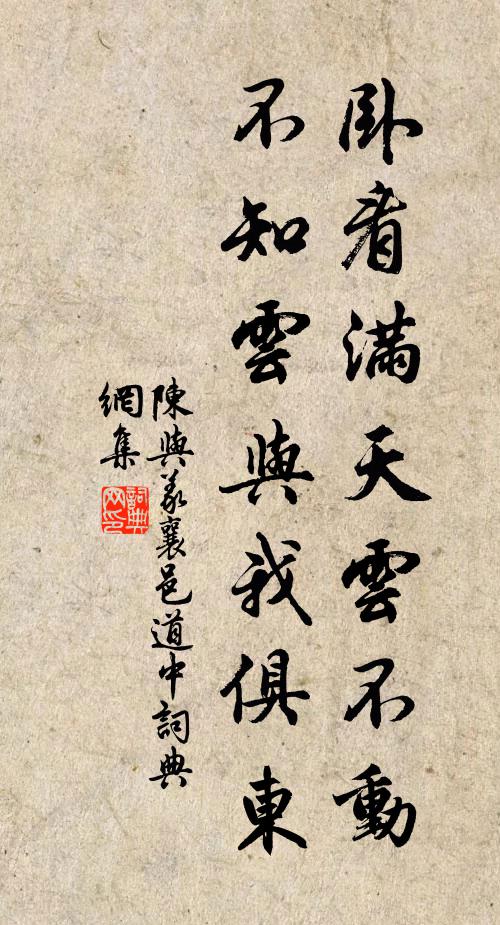 卧看滿天雲不動
不知雲與我俱東
陳與義襄邑道中詞典
網集
詞典网印